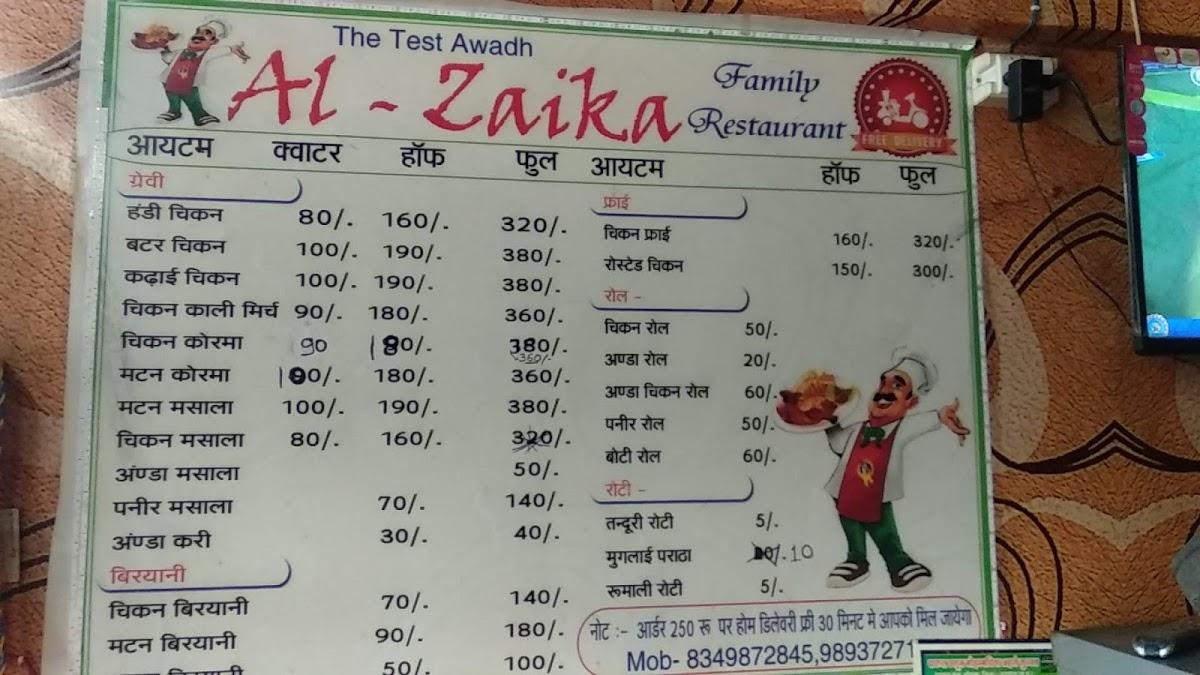 The Test Awadh
Al - Zaika
Family
Restaurant
FREE DELIVERY
आयटम क्वाटर हॉफ फुल
ग्रेवी
हंडी चिकन 80/. 160/. 320/.
बटर चिकन 100/. 190/. 380/.
कढ़ाई चिकन 100/. 190/. 380/.
चिकन काली मिर्च 90/. 180/. 360/.
चिकन कोरमा 90 180/. 380/.
360/-
मटन कोरमा 100/. 180/. 360/.
मटन मसाला 100/. 190/. 380/.
चिकन मसाला 80/. 160/. 320/.
अंण्डा मसाला 50/.
पनीर मसाला 70/. 140/.
अंण्डा करी 30/. 40/.
बिरयानी
चिकन बिरयानी 70/. 140/.
मटन बिरयानी 90/. 180/.
बिरयानी 50/. 100/.
आयटम हॉफ फुल
फ्राई
चिकन फ्राई 160/. 320/.
रोस्टेड चिकन 150/. 300/.
रोल -
चिकन रोल 50/.
अण्डा रोल 20/.
अण्डा चिकन रोल 60/.
पनीर रोल 50/.
बोटी रोल 60/.
रोटी -
तन्दूरी रोटी 5/.
मुगलाई पराठा 10
रूमाली रोटी 5/.
नोट :- आर्डर 250 रू पर होम डिलेवरी फ्री 30 मिनट मे आपको मिल जायेगा
Mob- 8349872845,98937271